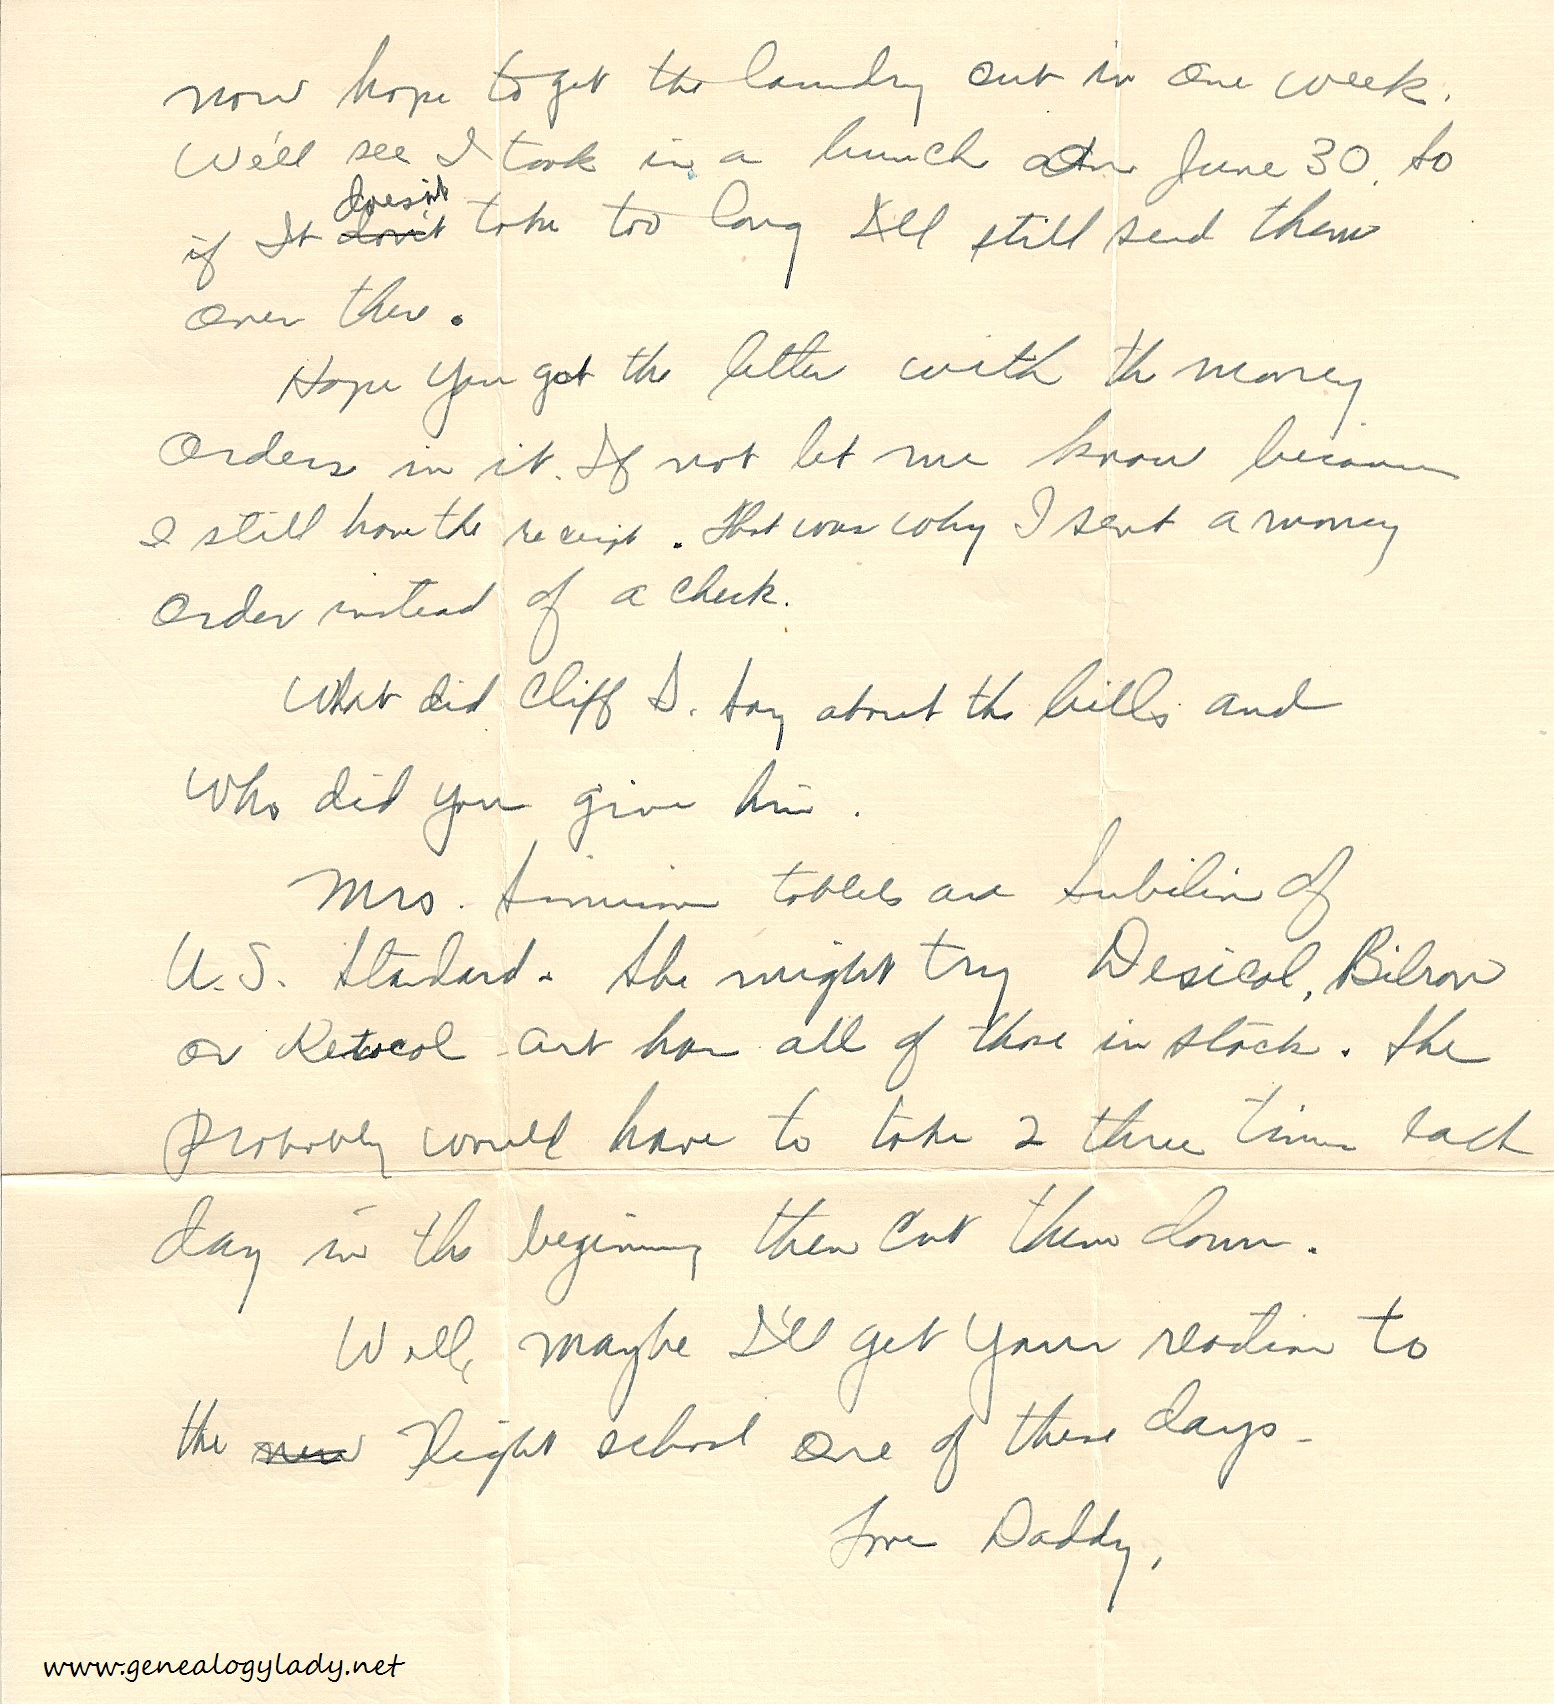 now hope to get the laundry out in one week.
We'll see I took in a bunch on June 30. So
if It don't doesn't take too long I'll still send them
over there.
Hope you got the letter with the money
orders in it. If not let me know because
I still have the receipt. That was why I sent a money
order instead of a check.
What did Cliff S. say about the bills and
Who did you give him.
Mrs. tablets are of
U.S. Standard. She might try Desicol, Bilron
or Ketocol Art have all of those in stock. She
probably would have to take 2 three times each
day in the beginning then cut them down.
Well, maybe I'll get your reaction to
the new Flight school one of these days-
Love Daddy,
www.genealogylady.net